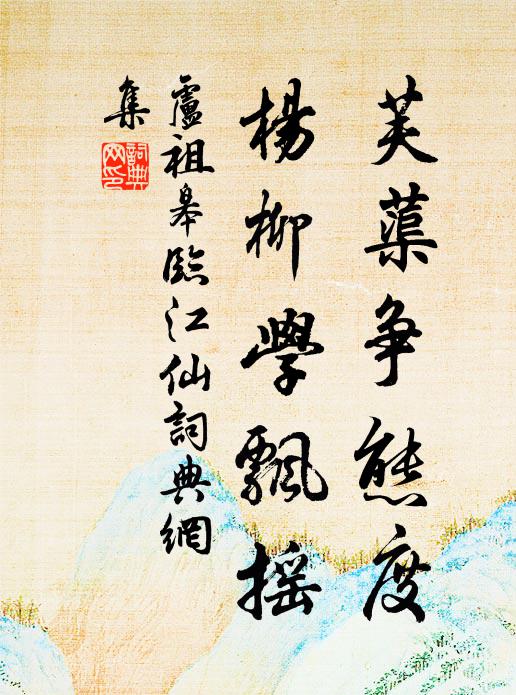 芙蕖争態度
楊柳學飄摇
盧祖皋臨江仙詞典網
集
詞典
网印